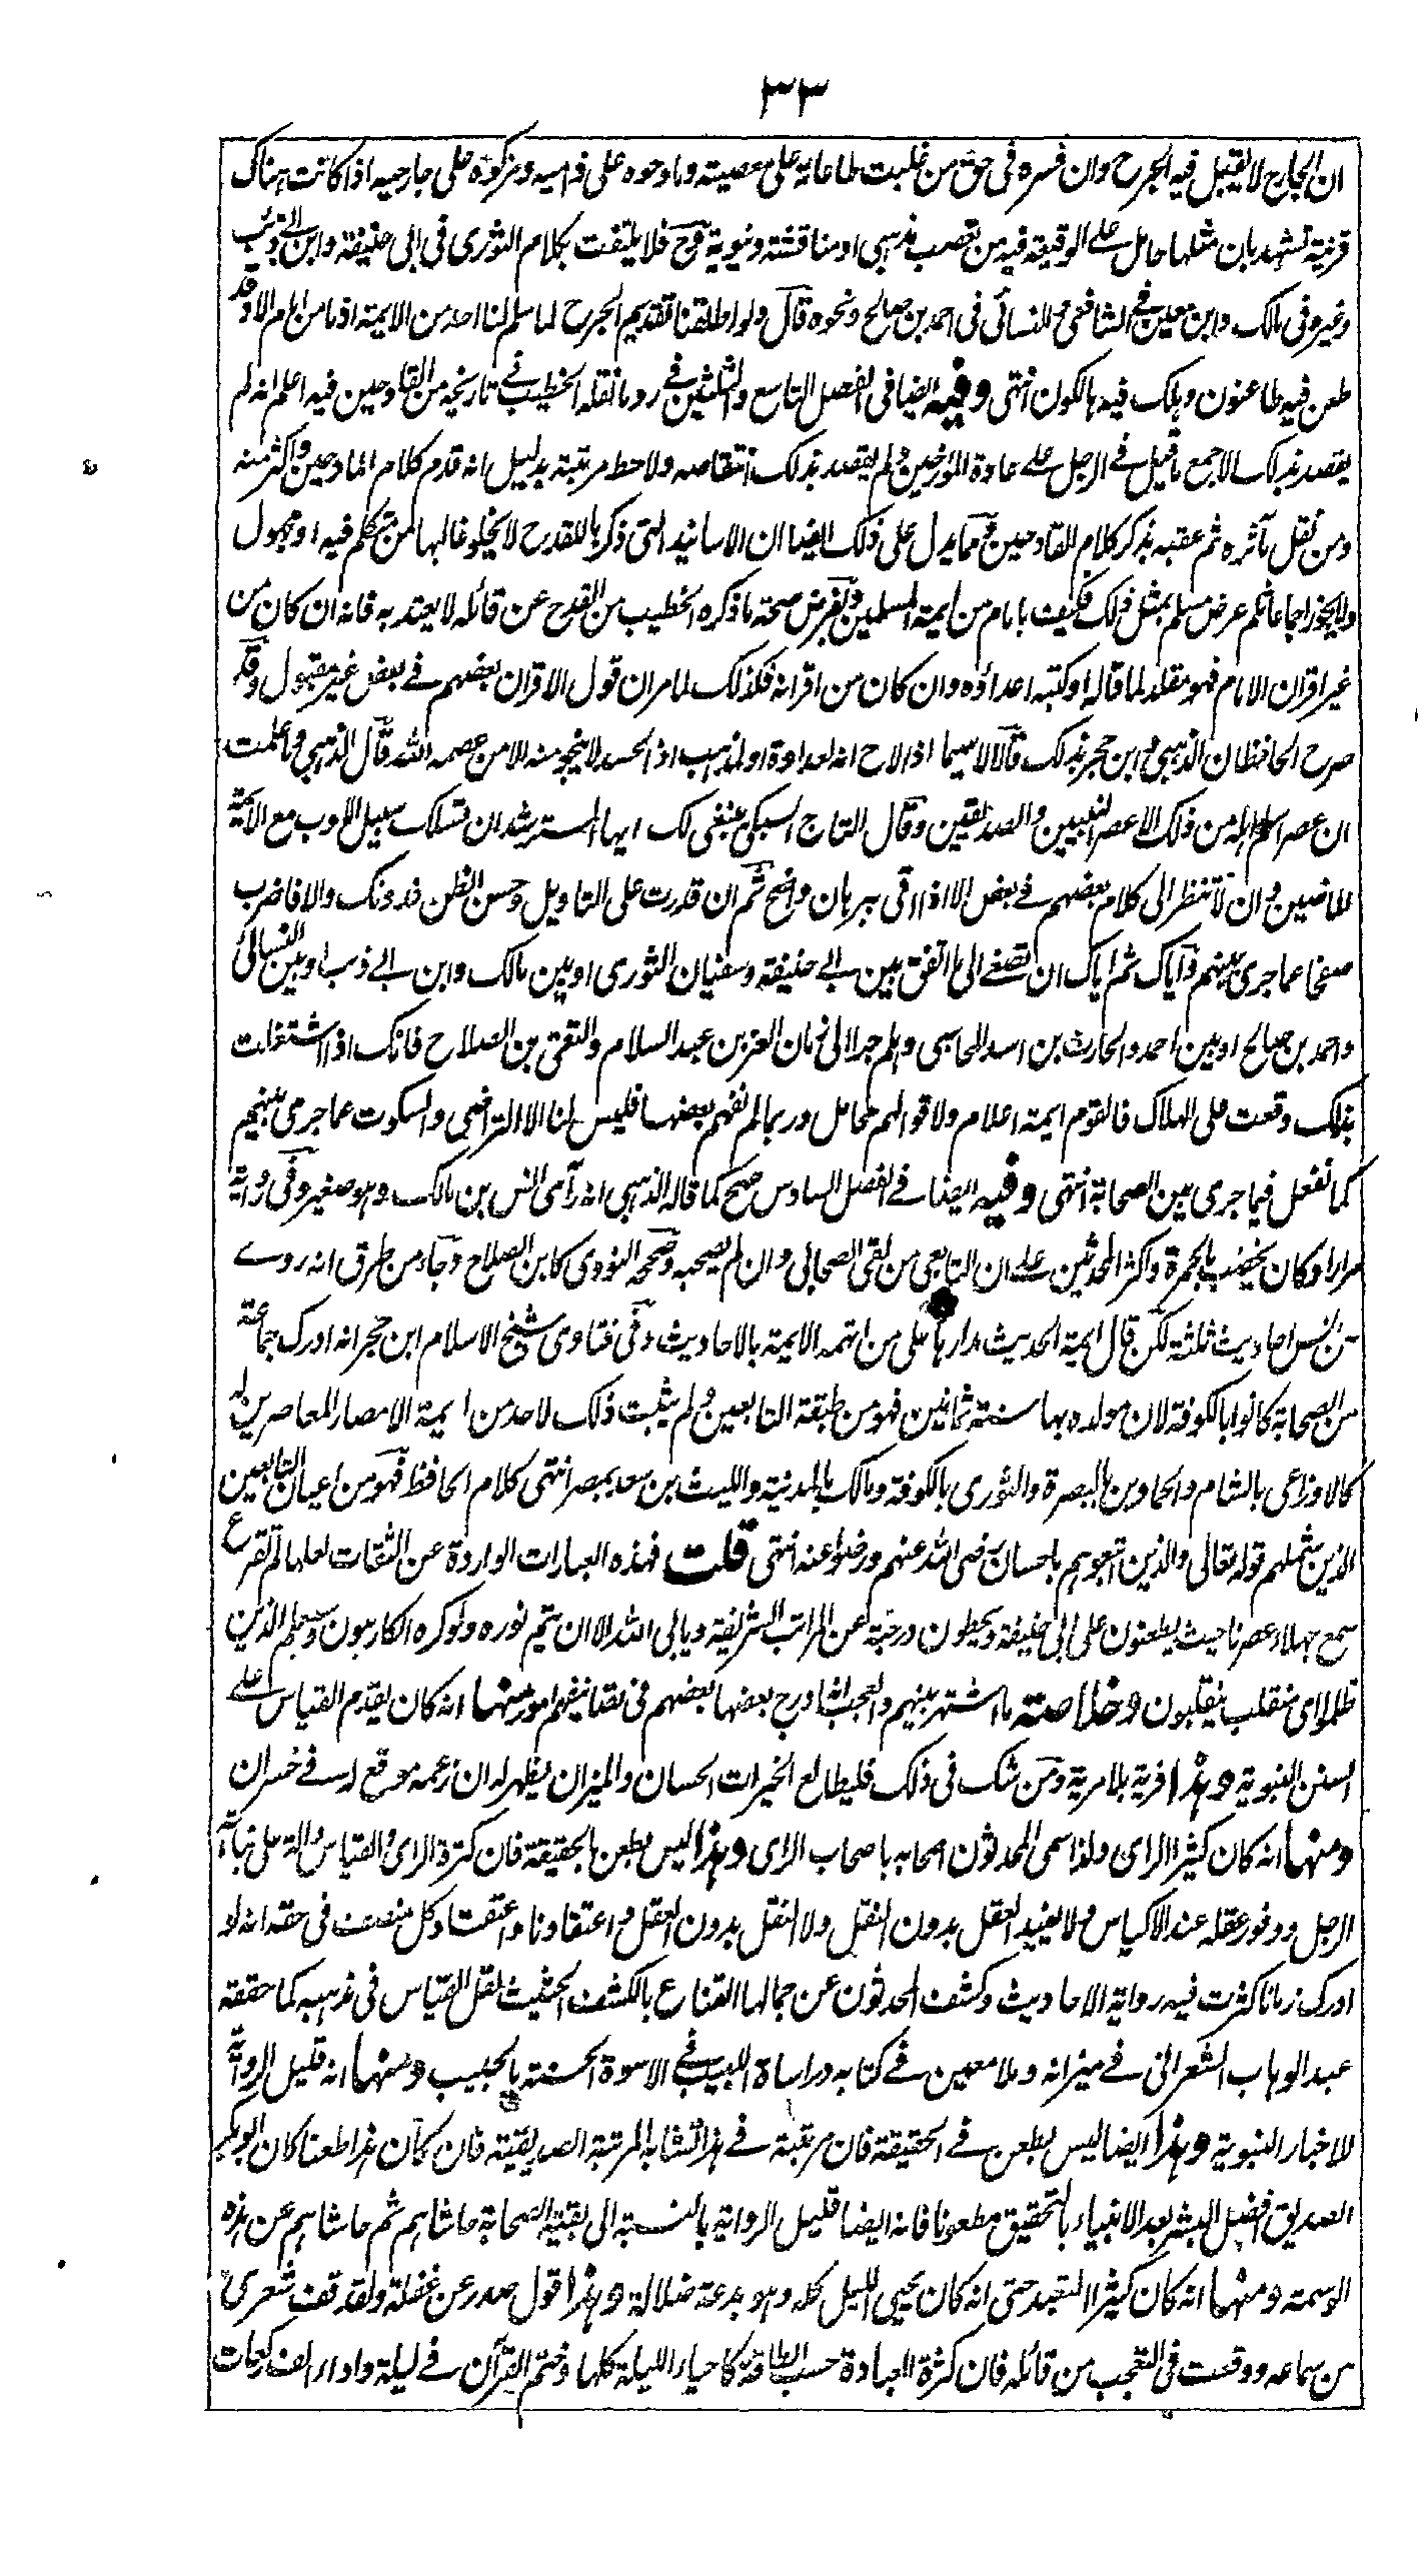 ٣٣
ان الجارح لا يقبل فيه الجرح وان فسره فى حق من غلبت طاعاته على معصيته ومادحوه على ذاميه ومزكوه على جارحيه اذا كانت هناك
قرينة تشهد بان مثلها حامل على الوقيعة فيه من تعصب مذهبى او مناقشة دنيوية وح فلا يلتفت لكلام الثورى فى ابى حنيفة وابن ابى ذئب
وغيره فى مالك وابن معين فى الشافعى والنسائى فى احمد بن صالح ونحوه قال ولو اطلقنا تقديم الجرح لما سلم لنا احد من الايمة اذ ما من امام الا وقد
طعن فيه طاعنون وهلك فيه هالكون انتهى وفيه ايضا فى الفصل التاسع والثلثين فى رد ما نقله الخطيب فى تاريخه من القادحين فيه اعلم انه لم
يقصد بذلك الا جمع ما قيل فى الرجل على عادة المؤرخين ولم يقصد بذلك انتقاصه ولا حط مرتبته بدليل انه قدم كلام المادحين واكثر منه
ومن نقل مآثره ثم عقبه بذكر كلام القادحين ومما يدل على ذلك ايضا ان الاسانيد التى ذكرها للقدح لا يخلو غالبها من متكلم فيه او مجهول
ولا يجوز اجماعا ثلم عرض مسلم بمثل ذلك فكيف بامام من ايمة المسلمين وبفرض صحة ما ذكره الخطيب من القدح عن قائله لا يعتد به فانه ان كان من
غير اقران الامام فهو مقلد لما قاله او كتبه اعداؤه وان كان من اقرانه فكذلك لما مر ان قول الاقران بعضهم فى بعض غير مقبول وقد
صرح الحافظان الذهبى وابن حجر بذلك قالا لا سيما اذا لاح انه لعداوة او لمذهب اذ الحسد لا ينجو منه الا من عصمه الله قال الذهبى وما علمت
ان عصرا سلم اهله من ذلك الا عصر النبيين والصديقين وقال التاج السبكى ينبغى لك ايها المسترشد ان تسلك سبيل الادب مع الائمة
الماضين وان لا تنظر الى كلام بعضهم فى بعض الا اذا اتى ببرهان واضح ثم ان قدرت على التاويل وحسن الظن فدونك والا فاضرب
صفحا عما جرى بينهم واياك ثم اياك ان تصغى الى ما اتفق بين ابى حنيفة وسفيان الثورى او بين مالك وابن ابى ذئب او بين النسائى
واحمد بن صالح او بين احمد والحارث بن اسد المحاسبى وهلم جرا الى زمان العز بن عبد السلام والتقى بن الصلاح فانك اذا اشتغلت
بذلك وقعت على الهلاك فالقوم ايمة اعلام ولاقوالهم محامل وربما لم نفهم بعضها فليس لنا الا التراضى والسكوت عما جرى بينهم
كما نفعل فيما جرى بين الصحابة انتهى وفيه ايضا فى الفصل السادس صح كما قاله الذهبى انه رآى انس بن مالك وهو صغير وفى رواية
مرارا وكان يخضب بالحمرة واكثر المحدثين على ان التابعى من لقى الصحابى وان لم يصحبه وصححه النووى كابن الصلاح وجاء من طرق انه روى
عن انس احاديث ثلثة لكن قال ايمة الحديث مدارها على من اتهمه الايمة بالاحاديث وفى فتاوى شيخ الاسلام ابن حجر انه ادرك جماعة
من الصحابة كانوا بالكوفة لان مولده بها سنة ثمانين فهو من طبقة التابعين ولم يثبت ذلك لاحد من ايمة الامصار المعاصرين له
كالاوزاعى بالشام والحمادين بالبصرة والثورى بالكوفة ومالك بالمدنية والليث بن سعد بمصر انتهى كلام الحافظ فهو من اعيان التابعين
الذين شملهم قوله تعالى والذين اتبعوهم باحسان رضى الله عنهم ورضوا عنه انتهى قلت فهذه العبارات الواردة عن الثقات لعلها لم تقرع
سمع جهلاء عصرنا حيث يطعنون على ابى حنيفة ويحطون درجته عن المراتب الشريفة ويابى الله الا ان يتم نوره ولو كره الكارهون وسيعلم الذين
ظلموا اى منقلب ينقلبون وخلاصته ما اشتهر بينهم والعجب انه ادرج بعضها بعضهم فى تصانيفهم امور منها انه كان يقدم القياس على
السنن النبوية وهذا فرية بلا مرية ومن شك فى ذلك فليطالع الخيرات الحسان والميزان يظهر له ان زعمه موقع له فى خسران
ومنها انه كان كثير الراى ولذا سمى المحدثون اصحابه باصحاب الراى وهذا ليس بطعن بالحقيقة فان كثرة الراى والقياس دالة على نباهة
الرجل ووفور عقله عند الاكياس ولا يفيد العقل بدون النقل ولا النقل بدون العقل واعتقادنا واعتقاد كل منصف فى حقه انه لو
ادرك زمانا كثرت فيه رواية الاحاديث وكشف المحدثون عن جمالها القناع بالكشف الحثيث لقل القياس فى مذهبه كما حققه
عبد الوهاب الشعرانى فى ميزانه وملا معين فى كتابه دراساة اللبيب فى الاسوة الحسنة بالحبيب ومنها انه قليل الرواية
للاخبار النبوية وهذا ايضا ليس بطعن فى الحقيقة فان مرتبته فى هذا تشابه المرتبة الصديقية فان كان هذا طعنا كان ابو بكر
الصديق افضل البشر بعد الانبياء بالتحقيق مطعونا فانه ايضا قليل الرواية بالنسبة الى بقية الصحابة حاشاهم ثم حاشاهم عن هذه
الوسمة ومنها انه كان كثير التعبد حتى انه كان يحيى الليل كله وهو بدعة ضلالة وهذا قول صدر عن غفلة ولقد قف شعرى
من سماعه ووقعت فى التعجب من قائله فان كثرة العبادة حسب الطاقة كاحياء الليلة كلها وختم القرآن فى ليلة واداء الف ركعات